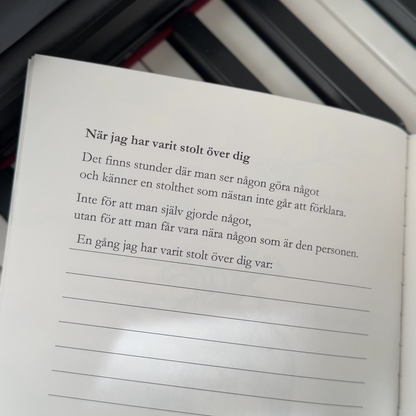 När jag har varit stolt över dig
Det finns stunder där man ser någon göra något
och känner en stolthet som nästan inte går att förklara.
Inte för att man själv gjorde något,
utan för att man får vara nära någon som är den personen.
En gång jag har varit stolt över dig var: